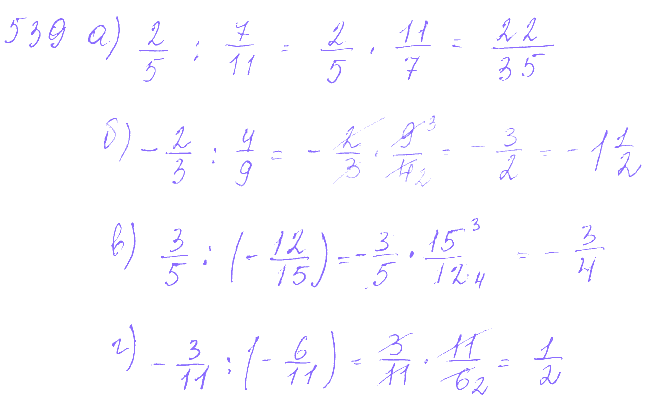 539 а) 2/5 : 7/11 = 2/5 · 11/7 = 22/35
б) - 2/3 : 4/9 = - 2/3 · 9/4 3 2 = - 3/2 = - 1 1/2
в) 3/5 : (- 12/15) = - 3/5 · 15/12 3 4 = - 3/4
г) - 3/11 : (- 6/11) = 3/11 · 11/6 2 = 1/2